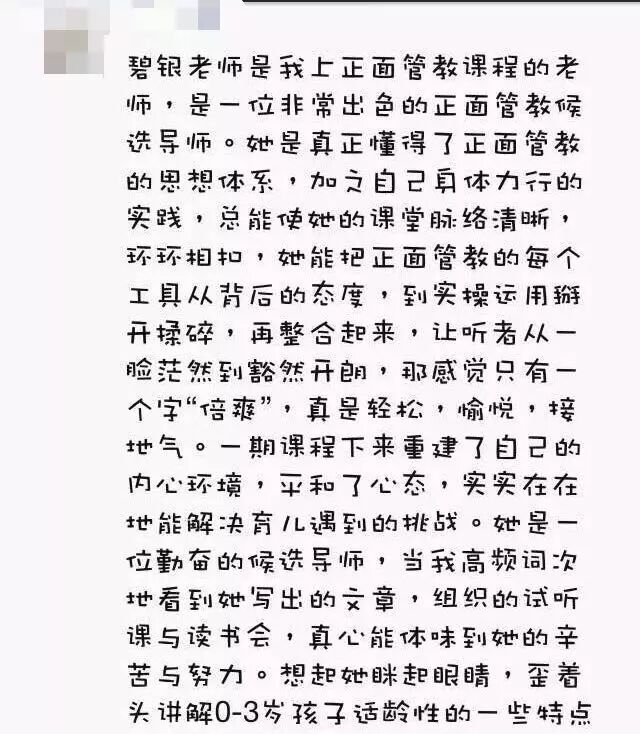 碧银老师是我上正面管教课程的老
师，是一位非常出色的正面管教候
选导师。她是真正懂得了正面管教
的思想体系，加之自己身体力行的
实践，总能使她的课堂脉络清晰，
环环相扣，她能把正面管教的每个
工具从背后的态度，到实操运用掰
开揉碎，再整合起来，让听者从一
脸茫然到豁然开朗，那感觉只有一
个字“倍爽”，真是轻松，愉悦，接
地气。一期课程下来重建了自己的
内心环境，平和了心态，实实在在
地能解决育儿遇到的挑战。她是一
位勤奋的候选导师，当我高频词次
地看到她写出的文章，组织的试听
课与读书会，真心能体味到她的辛
苦与努力。想起她眯起眼睛，歪着
头讲解0-3岁孩子适龄性的一些特点